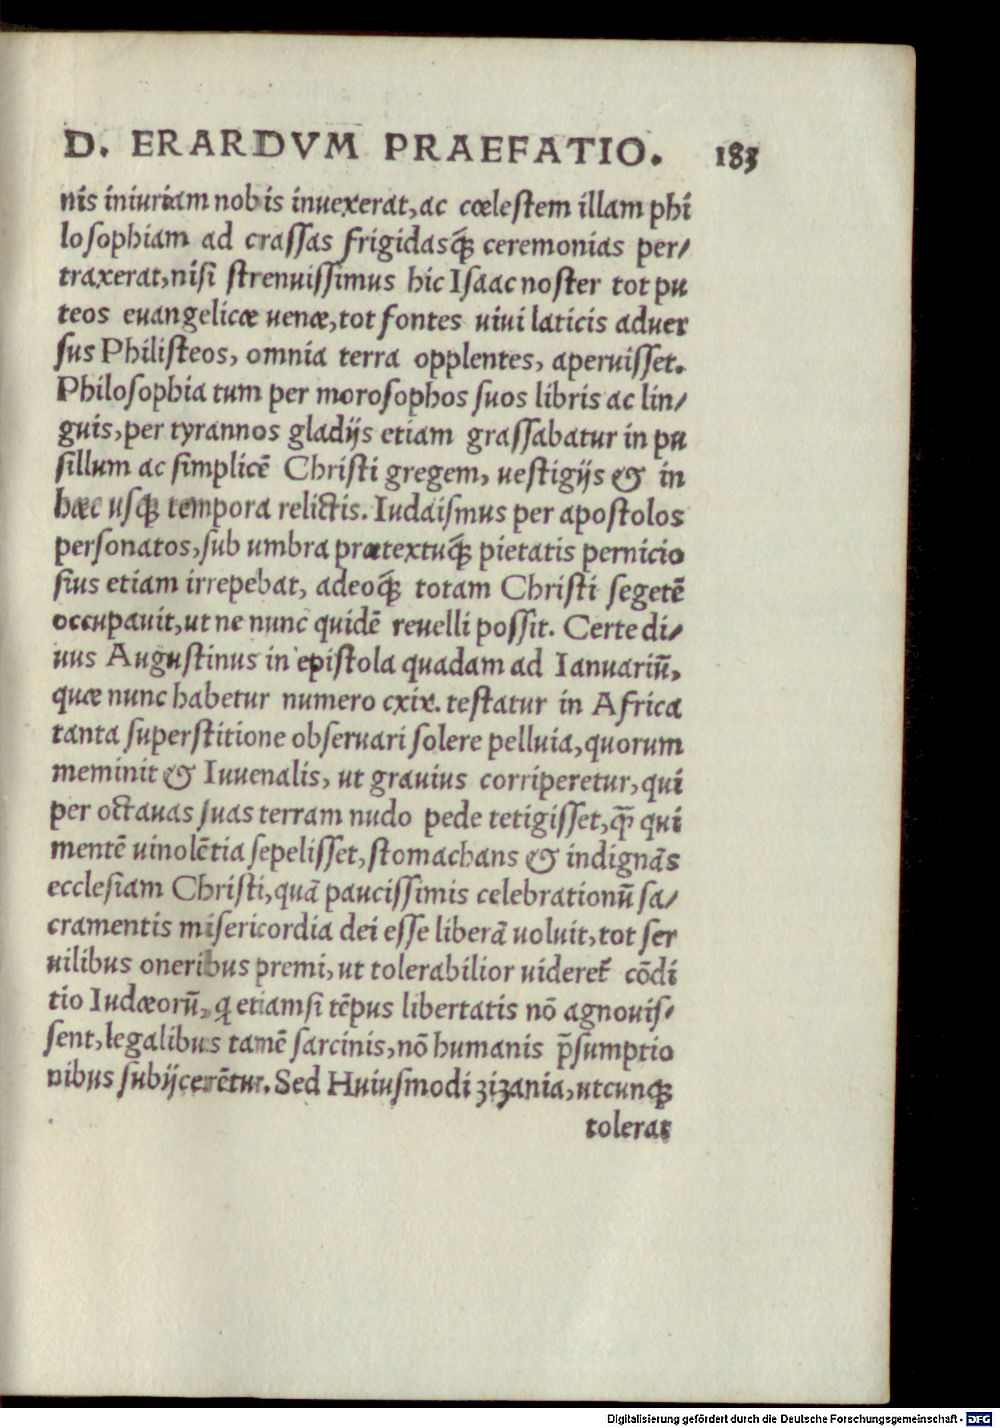 D. ERARDVM PRAEFATIO. 183
nis iniuriam nobis inuexerat, ac cœlestem illam phi
losophiam ad crassas frigidasq́; ceremonias per/
traxerat, nisi strenuissimus hic Isaac noster tot pu
teos euangelicæ uenæ, tot fontes uiui laticis aduer
sus Philisteos, omnia terra opplentes, aperuisset.
Philosophia tum per morosophos suos libris ac lin/
guis, per tyrannos gladijs etiam grassabatur in pu
sillum ac simplicē Christi gregem, uestigijs & in
hæc usq; tempora relictis. Iudaismus per apostolos
personatos, sub umbra prætextuq́; pietatis pernicio
sius etiam irrepebat, adeoq́; totam Christi segetē
occupauit, ut ne nunc quidē reuelli possit. Certe di/
uus Augustinus in epistola quadam ad Ianuariū,
quæ nunc habetur numero cxix. testatur in Africa
tanta superstitione obseruari solere pelluia, quorum
meminit & Iuuenalis, ut grauius corriperetur, qui
per octauas suas terram nudo pede tetigisset, q̄ qui
mentē uinolētia sepelisset, stomachans & indignãs
ecclesiam Christi, quã paucissimis celebrationū sa/
cramentis misericordia dei esse liberã uoluit, tot ser
uilibus oneribus premi, ut tolerabilior uideret᷑ cōdi
tio Iudæorū, q etiamsi tēpus libertatis nō agnouis/
sent, legalibus tamē sarcinis, nō humanis p̄sumptio
nibus subijcerētur. Sed Huiusmodi zizania, utcunq;
tolerat
Digitalisierung gefördert durch die Deutsche Forschungsgemeinschaft - DFG